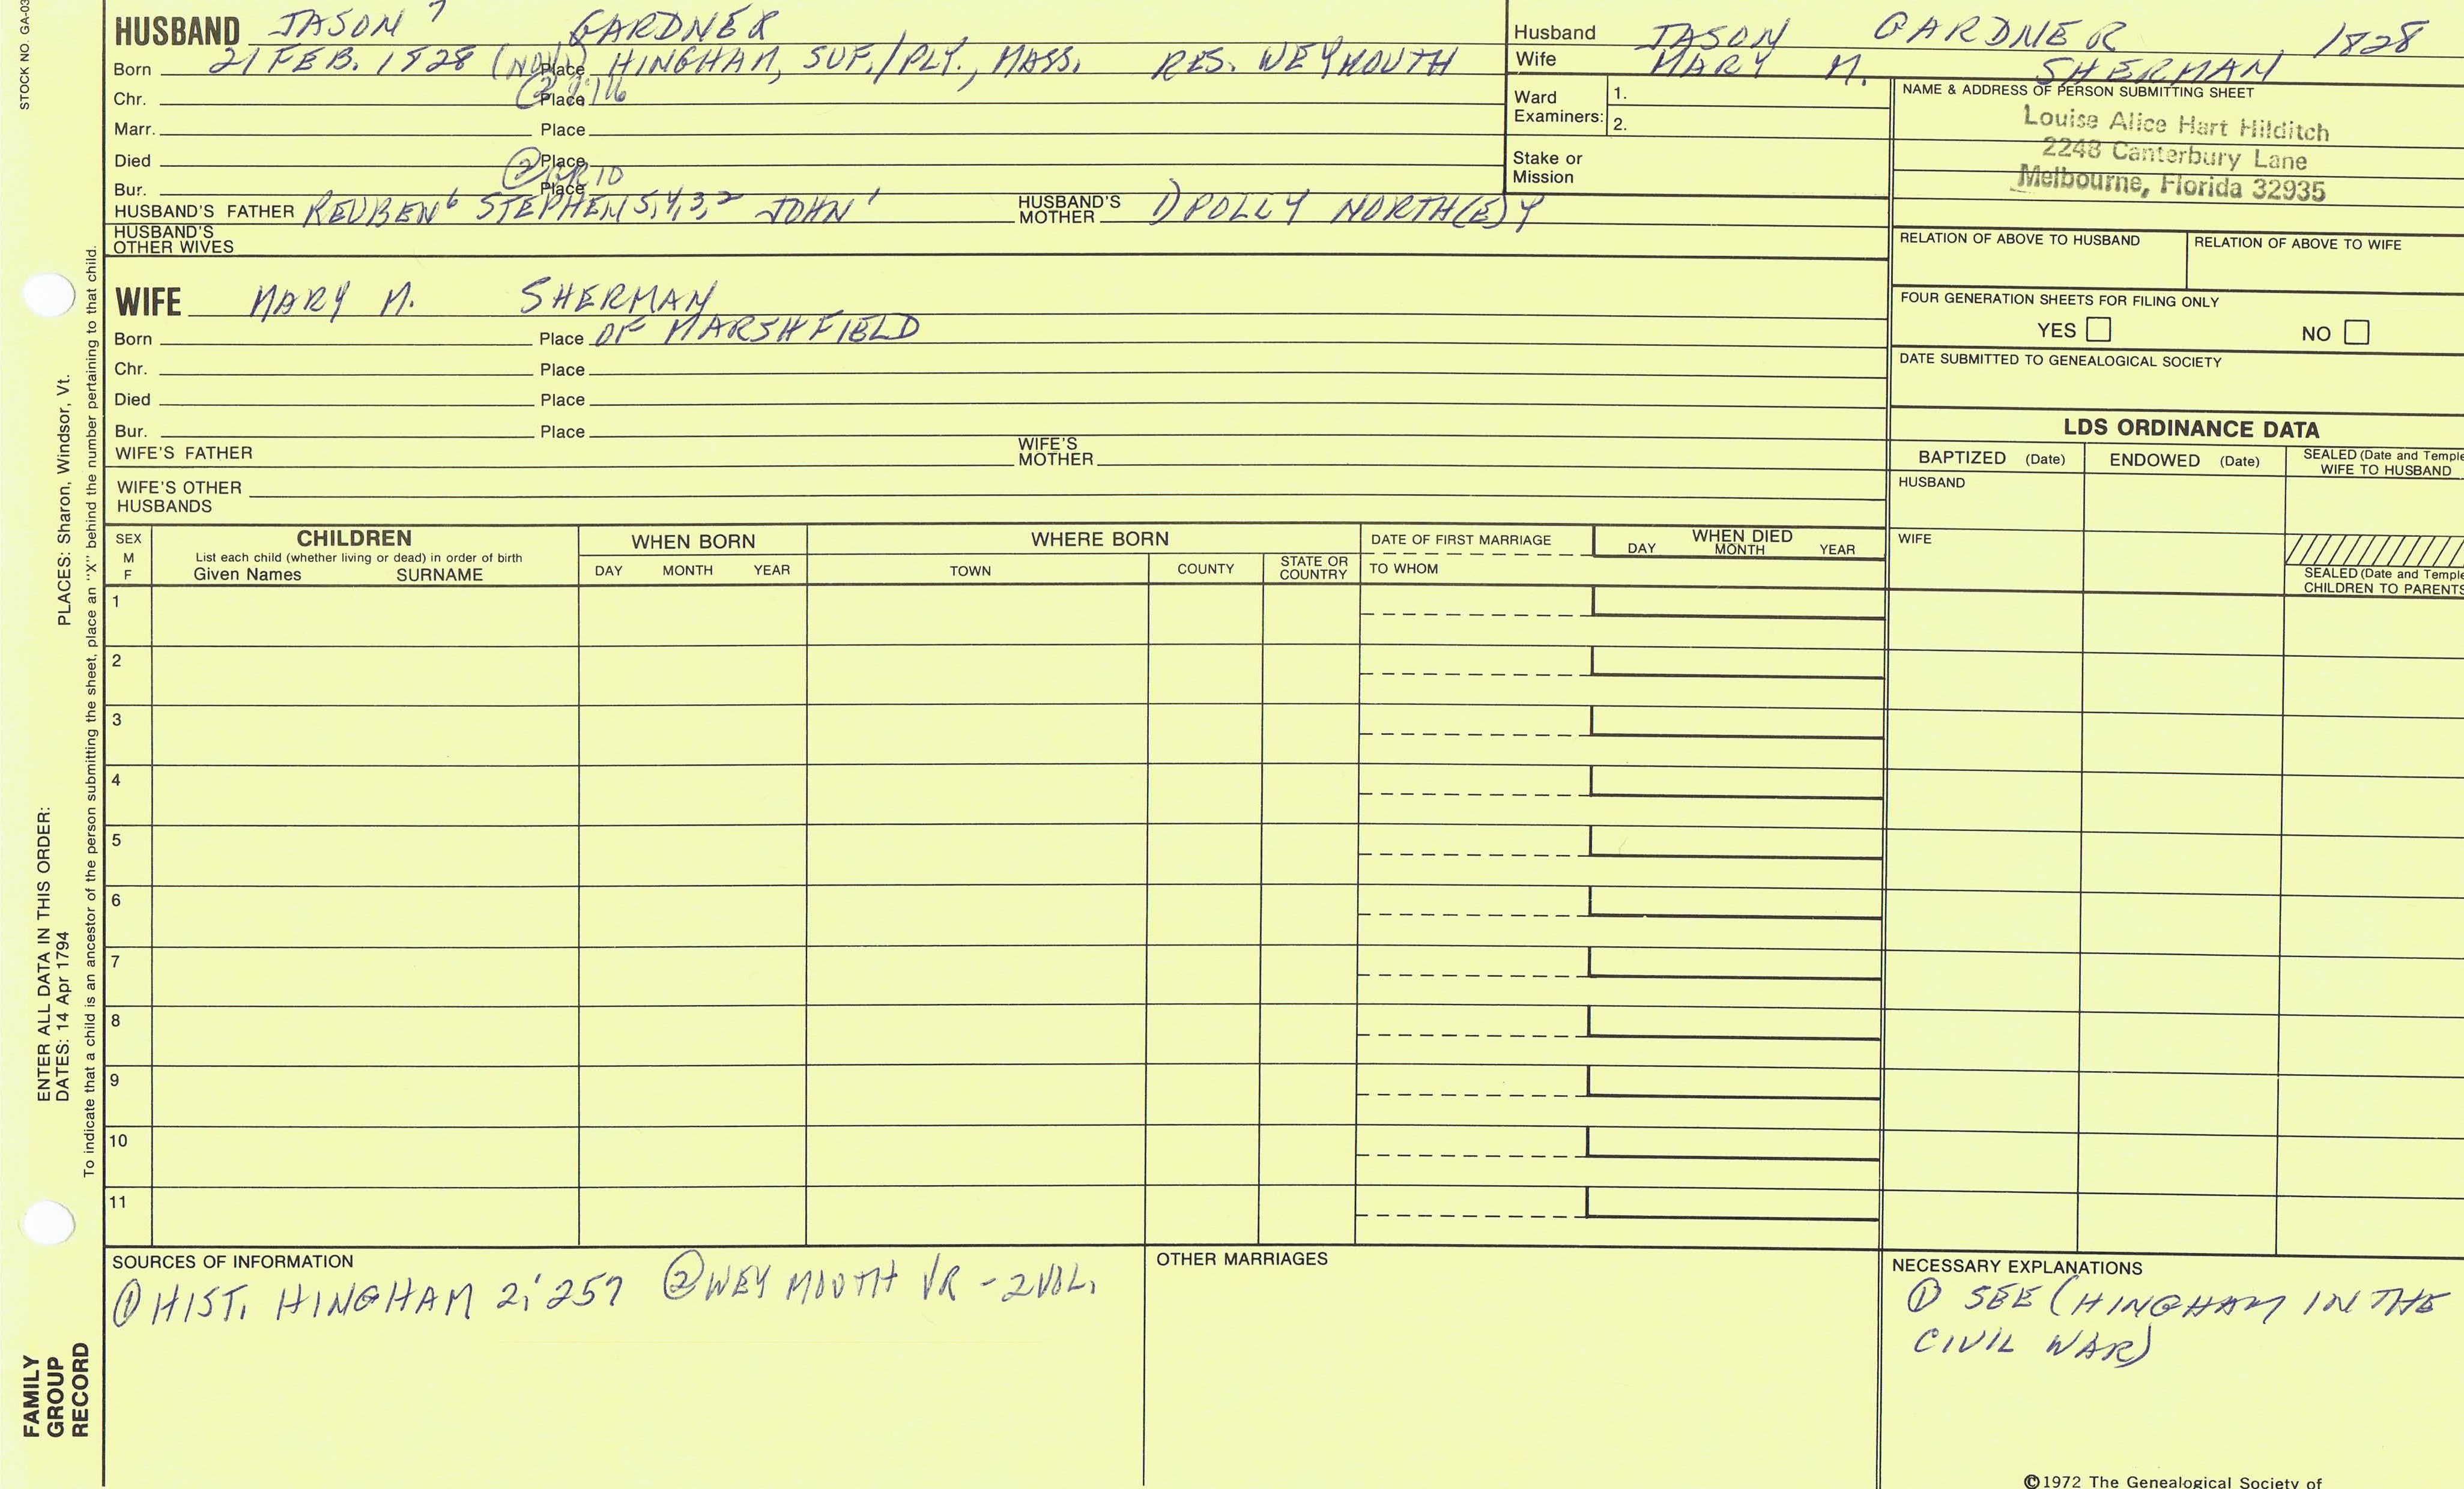 STOCK NO. GA-03
HUSBAND JASON 7 GARDNER
Born 21 FEB. 1828 Place HINGHAM, SUF./PLY., MASS. RES. WEYMOUTH
Chr. Place
Marr. Place
Died Place
Bur. Place
HUSBAND'S FATHER REUBEN 6 STEPHEN 5,4,3,2 JOHN 1 HUSBAND'S MOTHER 1) POLLY NORTH(E)Y
HUSBAND'S OTHER WIVES
WIFE MARY M. SHERMAN
Born Place OF MARSHFIELD
Chr. Place
Died Place
Bur. Place
WIFE'S FATHER WIFE'S MOTHER
WIFE'S OTHER HUSBANDS
Husband JASON GARDNER, 1828
Wife MARY M. SHERMAN
Ward Examiners: 1.
2.
Stake or Mission
NAME & ADDRESS OF PERSON SUBMITTING SHEET
Louise Alice Hart Hilditch
2248 Canterbury Lane
Melbourne, Florida 32935
RELATION OF ABOVE TO HUSBAND RELATION OF ABOVE TO WIFE
FOUR GENERATION SHEETS FOR FILING ONLY
YES NO
DATE SUBMITTED TO GENEALOGICAL SOCIETY
LDS ORDINANCE DATA
BAPTIZED (Date) ENDOWED (Date) SEALED (Date and Temple
WIFE TO HUSBAND
HUSBAND
WIFE
SEALED (Date and Temple
CHILDREN TO PARENTS
SEX M F
CHILDREN
List each child (whether living or dead) in order of birth
Given Names SURNAME
WHEN BORN
DAY MONTH YEAR
WHERE BORN
TOWN COUNTY STATE OR COUNTRY
DATE OF FIRST MARRIAGE
TO WHOM
WHEN DIED
DAY MONTH YEAR
1
2
3
4
5
6
7
8
9
10
11
SOURCES OF INFORMATION
① HIST. HINGHAM 2:257 ② WEYMOUTH VR - 2 VOL.
OTHER MARRIAGES
NECESSARY EXPLANATIONS
① SEE (HINGHAM IN THE
CIVIL WAR)
©1972 The Genealogical Society of
PLACES: Sharon, Windsor, Vt.
ENTER ALL DATA IN THIS ORDER:
DATES: 14 Apr 1794
To indicate that a child is an ancestor of the person submitting the sheet, place an "X" behind the number pertaining to that child.
FAMILY
GROUP
RECORD